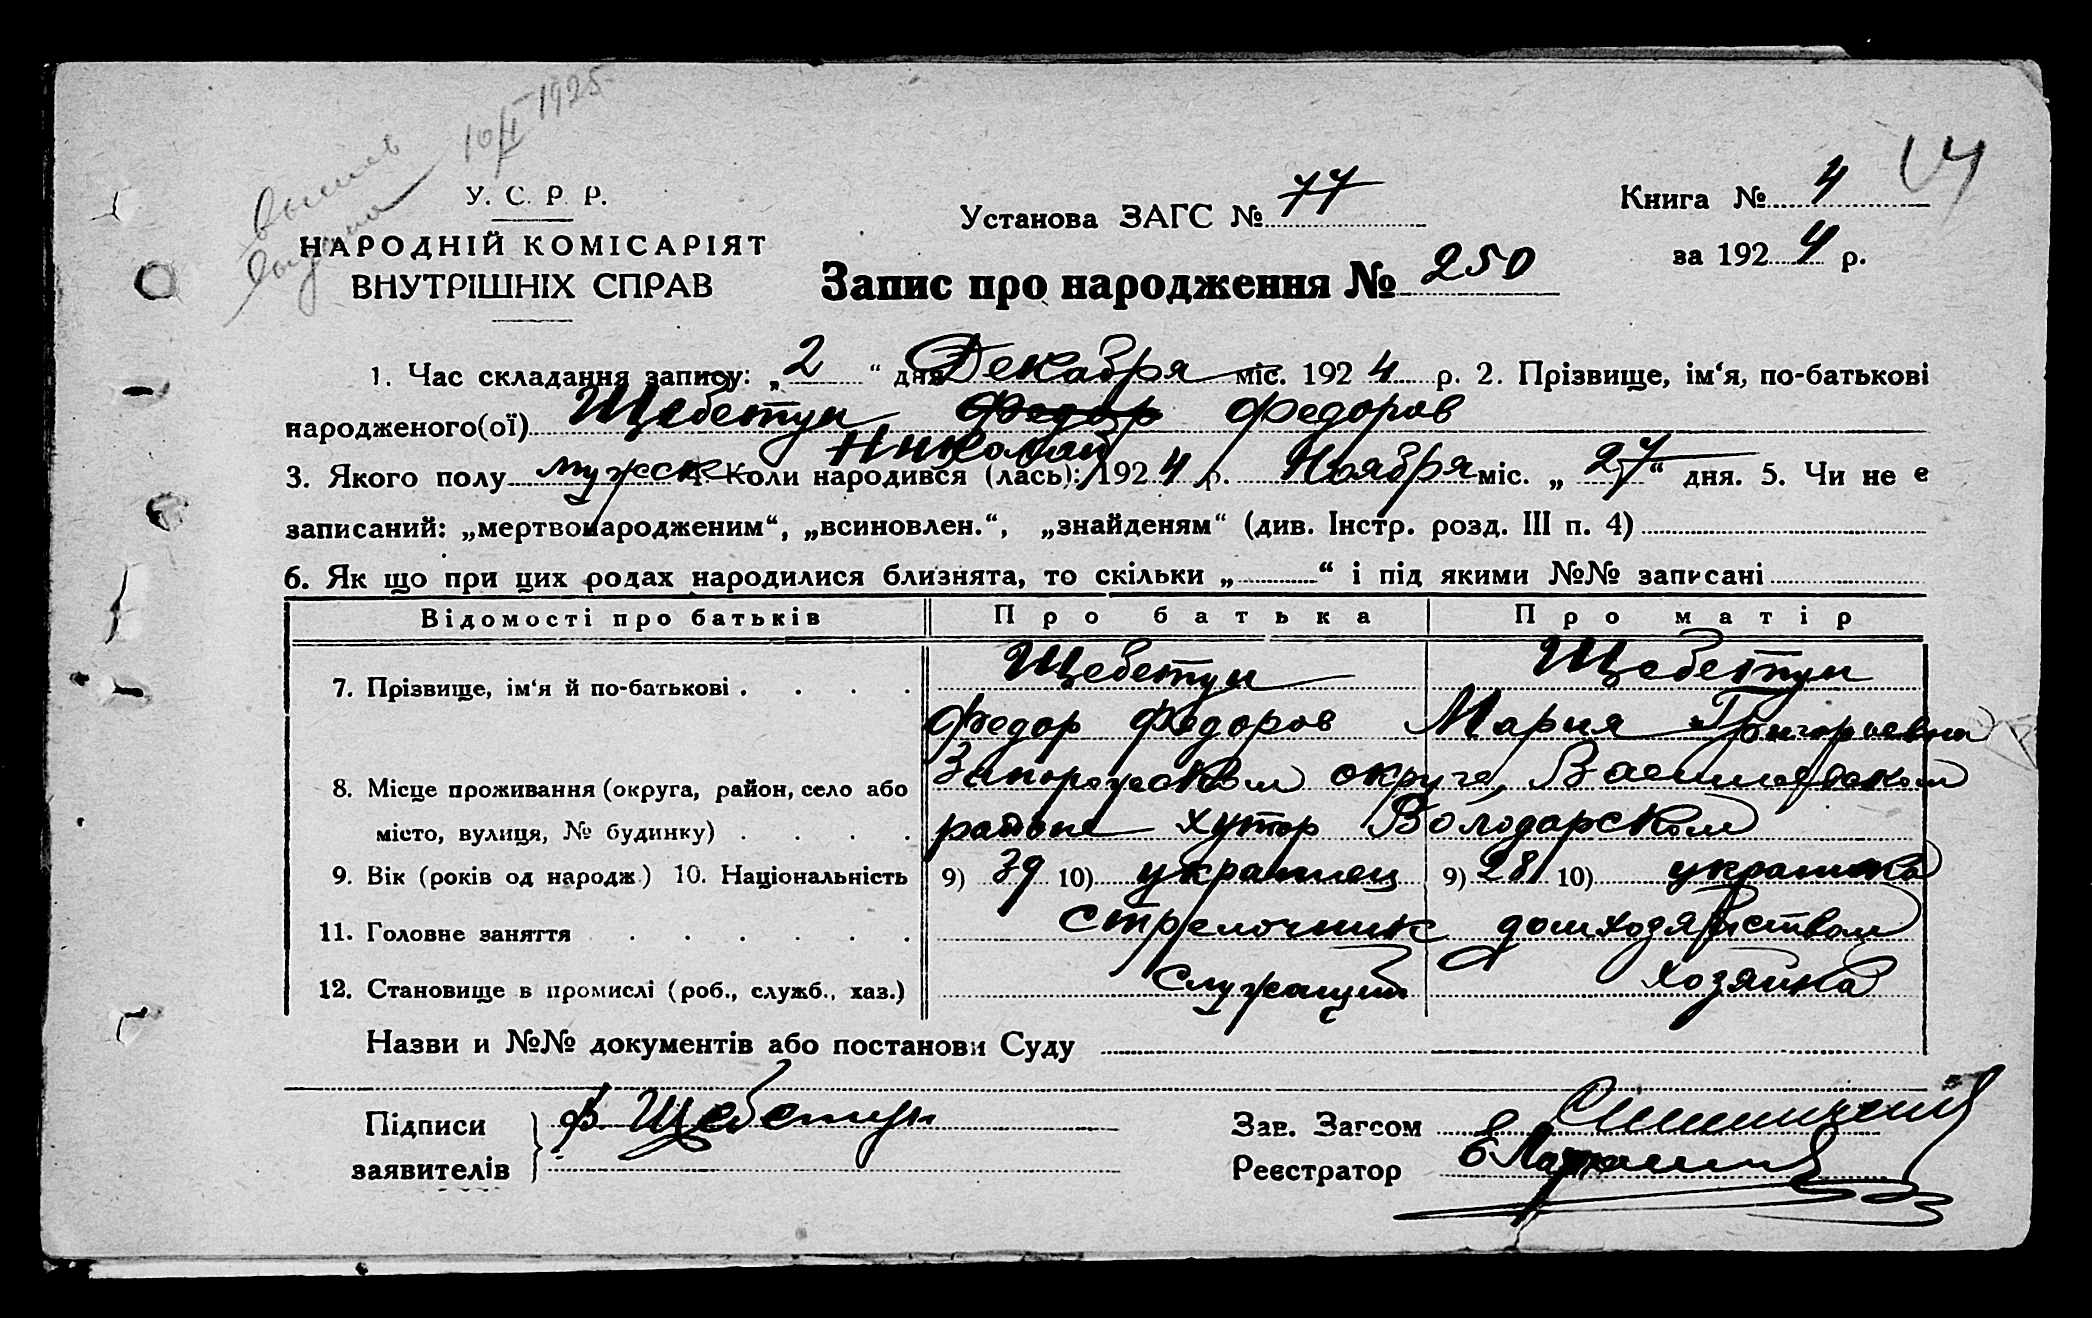 10/II 1925
У. С. Р. Р.
НАРОДНІЙ КОМІСАРІЯТ
ВНУТРІШНІХ СПРАВ
Установа ЗАГС № 77
Книга № 4
за 1924 р.
Запис про народження № 250
1. Час складання запису: „2“ дня Декабря міс. 1924 р. 2. Прізвище, ім‘я, по-батькові
народженого(ої) Щебетун Федор Федоров
Николай
3. Якого полу мужск 4. Коли народився (лась): 1924 р. Ноября міс. „27“ дня. 5. Чи не е
записаний: „мертвонародженим“, „всиновлен.“, „знайденям“ (див. Інстр. розд. III п. 4)
6. Як що при цих родах народилися близнята, то скільки „ “ і під якими №№ записані
Відомості про батьків Про батька Про матір
7. Прізвище, ім‘я й по-батькові . . . . Щебетун Щебетун
Федор Федоров Мария Григорьевна
8. Місце проживання (округа, район, село або Запорожском округе, Васильевском
місто, вулиця, № будинку) . . . . районе хутор Володарском
9. Вік (років од народж.) 10. Національність 9) 39 10) украинец 9) 28 10) украинка
11. Головне заняття . . . . . . стрелочник домхозяйством
12. Становище в промислі (роб., служб., хаз.) служащий хозяйка
Назви и №№ документів або постанови Суду
Підписи
заявителів
Ф. Щебетун
Зав. Загсом
Реєстратор